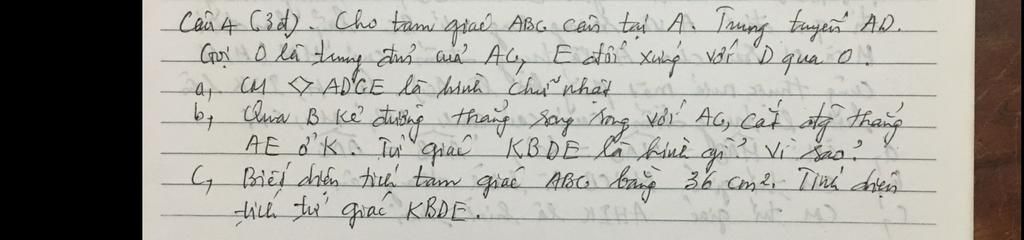 Câu 4 (3đ). Cho tam giác ABC cân tại A. Trung tuyến AD.
Gọi O là trung điểm của AC, E đối xứng với D qua O.
a, CM ◇ ADCE là hình chữ nhật
b, Qua B kẻ đường thẳng song song với AC, cắt đg thẳng
AE ở K. Tứ giác KBDE là hình gì? Vì sao?
C, Biết diện tích tam giác ABC bằng 36 cm². Tính diện
tích tứ giác KBDE.